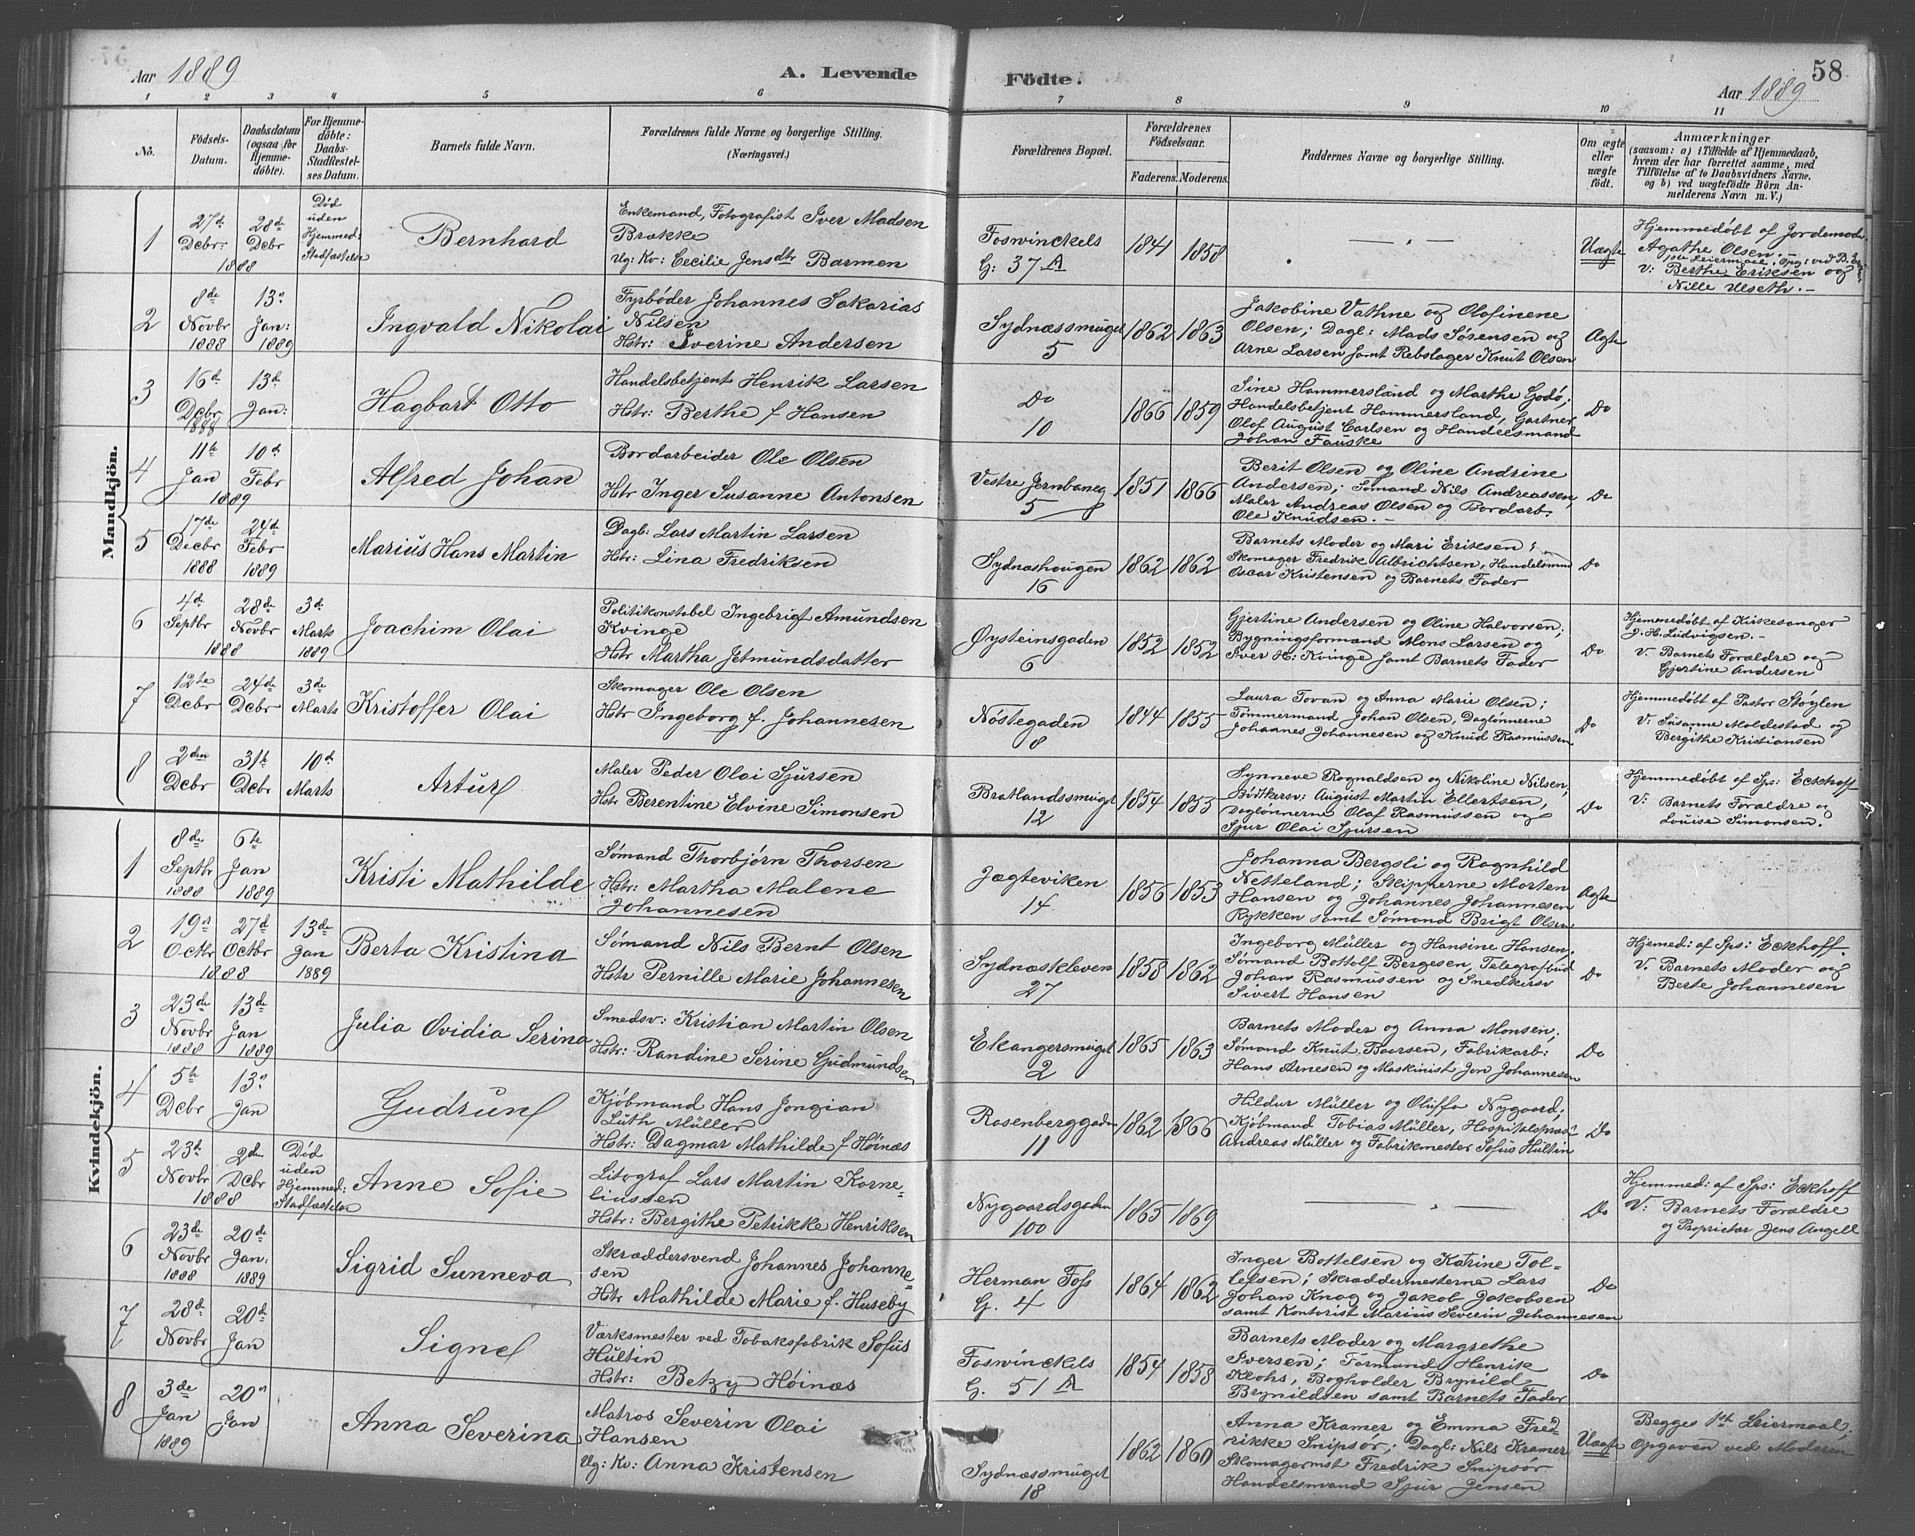 58
Aar 1889
A. Levende
Födte.
Aar 1889
1 2 3 4 5 6 7 8 9 10 11
No.
Födsels-Datum.
Daabsdatum (ogsaa för Hjemme-döbte).
For Hjemme-döbte: Daabs-Stadfæstel-ses Datum.
Barnets fulde Navn.
Forældrenes fulde Navne og borgerlige Stilling.
(Næringsvei.)
Forældrenes Bopæl.
Forældrenes Födselsaar.
Faderens. Moderens.
Faddernes Navne og borgerlige Stilling.
Om ægte eller uægte födt.
Anmærkninger
(saasom: a) i Tilfælde af Hjemmedaab, hvem der har forrettet samme, med Tilföielse af to Daabsvidners Navne, og b) ved uægtefödte Börn An-melderens Navn m. V.)
Mandkjön.
1 27de Decbr: 28de Decbr 1888 Død uden Hjemmed: Stadfæstelse
Bernhard
Enkemand, Fotografist Iver Madsen
Brække
Ug: Kv: Cecilie Jensdtr Barmen
Foswinckels
G: 37 A
1841 1858
— " —
Uægte
Hjemmedøbt af Jordemoder
Agathe Olsen.
1ste Leiermaal.
V: Berthe Eriksen og
Nille Ulseth. —
2 8de Novbr 1888 13de Jan: 1889
Ingvald Nikolai
Fyrbøder Johannes Sakarias
Nilsen
Hstr: Iverine Andersen
Sydnæssmuget
5
1862 1863
Jakobine Vathne og Olofinene
Olsen; Dagl: Mads Sørensen og
Arne Larsen samt Rebslager Knut Olsen
Ægte
3 16de Decbr 1888 13de Jan:
Hagbart Otto
Handelsbetjent Henrik Larsen
Hstr: Berthe f Hansen
Do
10
1866 1859
Sine Hammersland og Marthe Godø;
Handelsbetjent Hammersland, Gartner
Olof August Carlsen og Handelsmand
Johan Fauske
Do
4 11te Jan 10de Febr 1889
Alfred Johan
Bordarbeider Ole Olsen
Hstr Inger Susanne Antonsen
Vestre Jernbaneg
5
1851 1866
Berit Olsen og Oline Andrine
Andersen; Sømand Nils Andreassen,
Maler Andreas Olsen og Bordarb.
Ole Knudsen. —
Do
5 17de Decbr 1888 24de Febr 1889
Marius Hans Martin
Dagl: Lars Martin Larsen
Hstr: Lina Fredriksen
Sydnæshougen
16
1862 1862
Barnets Moder og Mari Eriksen;
Skomager Fredrik Albrichtsen, Handelsmnd
Oscar Kristensen og Barnets Fader
Do
6 4de Septbr 28de Novbr 1888 3de Marts 1889
Joachim Olai
Politikonstabel Ingebrigt Amundsen
Kvinge
Hstr Martha Jetmundsdatter
Øysteinsgaden
6
1852 1852
Gjertine Andersen og Oline Halvorsen;
Bygningsformand Mons Larsen og
Iver H: Kvinge samt Barnets Fader
Do
Hjemmedøbt af Kirkesanger
J. H. Ludvigsen. —
V: Barnets Forældre og
Gjertine Andersen
7 12te Decbr 24de Decbr 3de Marts
Kristoffer Olai
Skomager Ole Olsen
Hstr Ingeborg f. Johannesen
Nøstegaden
8
1844 1855
Laura Tovan og Anna Marie Olsen;
Tømmermand Johan Olsen, Daglønnerne
Johannes Johannesen og Knud Rasmussen
Do
Hjemmedøbt af Pastor Støylen
V: Susanne Moldestad og
Bergithe Kristiansen
8 2den Decbr 31te Decbr 10de Marts
Artur
Maler Peder Olai Sjursen
Hstr Berentine Elvine Simonsen
Bratlandssmuget
12
1854 1853
Synneve Rognaldsen og Nikoline Nilsen,
Bødtkersv: August Martin Ellertsen,
Daglønnerne Olaf Rasmussen og
Sjur Olai Sjursen
Do
Hjemmedøbt af Sps: Eckhoff
V: Barnets Forældre og
Louise Simonsen.
Kvindekjön.
1 8de Septbr 1888 6te Jan 1889
Kristi Mathilde
Sømand Thorbjørn Thorsen
Hstr: Martha Malene
Johannesen
Jægteviken
14
1856 1853
Johanna Bergsli og Ragnhild
Netteland; Skipperne Morten
Hansen og Johannes Johannesen
Rykken samt Sømand Brigt Olsen
Ægte
2 19de Octbr 27de Octbr 1888 13de Jan 1889
Berta Kristina
Sømand Nils Bernt Olsen
Hstr Pernille Marie Johannesen
Sydnæskleven
27
1858 1862
Ingeborg Müller og Hansine Hansen;
Sømand Bottolf Bergesen, Telegrafbud
Johan Rasmussen og Snedkersv
Sivert Hansen
Do
Hjemed: af Sps: Eckhoff.
V. Barnets Moder og
Berte Johannesen
3 23de Novbr 1888 13de Jan 1889
Julia Ovidia Serina
Smedsv: Kristian Martin Olsen
Hstr: Randine Serine Gudmundsen
Ekangersmuget
2
1865 1863
Barnets Moder og Anna Monsen;
Sømand Knut Baarsen, Fabrikarb:
Hans Arnesen og Maskinist Jon Johannesen
Do
4 5te Decbr 13de Jan
Gudrun
Kjøbmand Hans Jongian
Luth Müller
Hstr: Dagmar Mathilde f Høinæs
Rosenberggaden
11
1862 1866
Hildur Müller og Oluffa Nygaard;
Kjøbmand Tobias Müller, Hospitalspræst
Andreas Müller og Fabrikmester Sofus Hultin
Do
5 23de Novbr 2de Decbr 1888 Død uden Hjemmed: Stadfæstelse
Anne Sofie
Litograf Lars Martin Korne-
liussen
Hstr: Bergithe Petrikke Henriksen
Nygaardsgaden
100
1865 1869
— " —
Do
Hjemmed: af Sps: Eckhoff
V: Barnets Forældre
og Proprietær Jens Angell
6 23de Novbr 1888 20de Jan: 1889
Sigrid Sunneva
Skræddersvend Johannes Johanne-
sen
Hstr Mathilde Marie f. Huseby
Herman Foss
G. 4
1864 1862
Inger Bottelsen og Katrine Tol-
lefsen; Skræddermesterne Lars
Johan Knag og Jakob Jakobsen
samt Kontorist Marius Severin Johannesen
Do
7 28de Novbr 20de Jan
Signe
Værksmester ved Tobaksfabrik Sofus
Hultin
Hstr: Betzy Høinæs
Foswinckels
G. 51 A
1854 1858
Barnets Moder og Margrethe
Iversen; Formand Henrik
Klohs, Bogholder Brynild
Brynildsen samt Barnets Fader
Do
8 3de Jan 1889 20de Jan
Anna Severina
Matros Severin Olai
Hansen
Ug: Kv: Anna Kristensen
Sydnæssmuget
18
1862 1860
Anna Kramer og Emma Fred-
rikke Snipsør; Dagl: Nils Kramer
Skomagermst Fredrik Snipsør
Handelsmand Sjur Jensen
Uægte
Begges 1ste Leiermaal,
opgaven ved Moderen